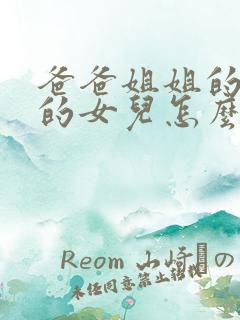 爸爸姐姐的
的女兒怎麼
Reom 山崎の
未任同意禁止転載